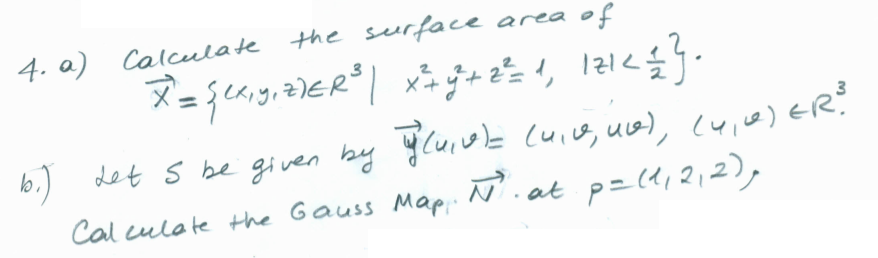 4. a) Calculate the surface area of
X⃗ = {(x,y,z)∈R³ | x²+y²+z²=1, |z|<1/2}.
b.) Let S be given by y⃗(u,v)= (u,v,uv), (u,v) ∈R³.
Calculate the Gauss Map N⃗ . at p=(1,2,2),